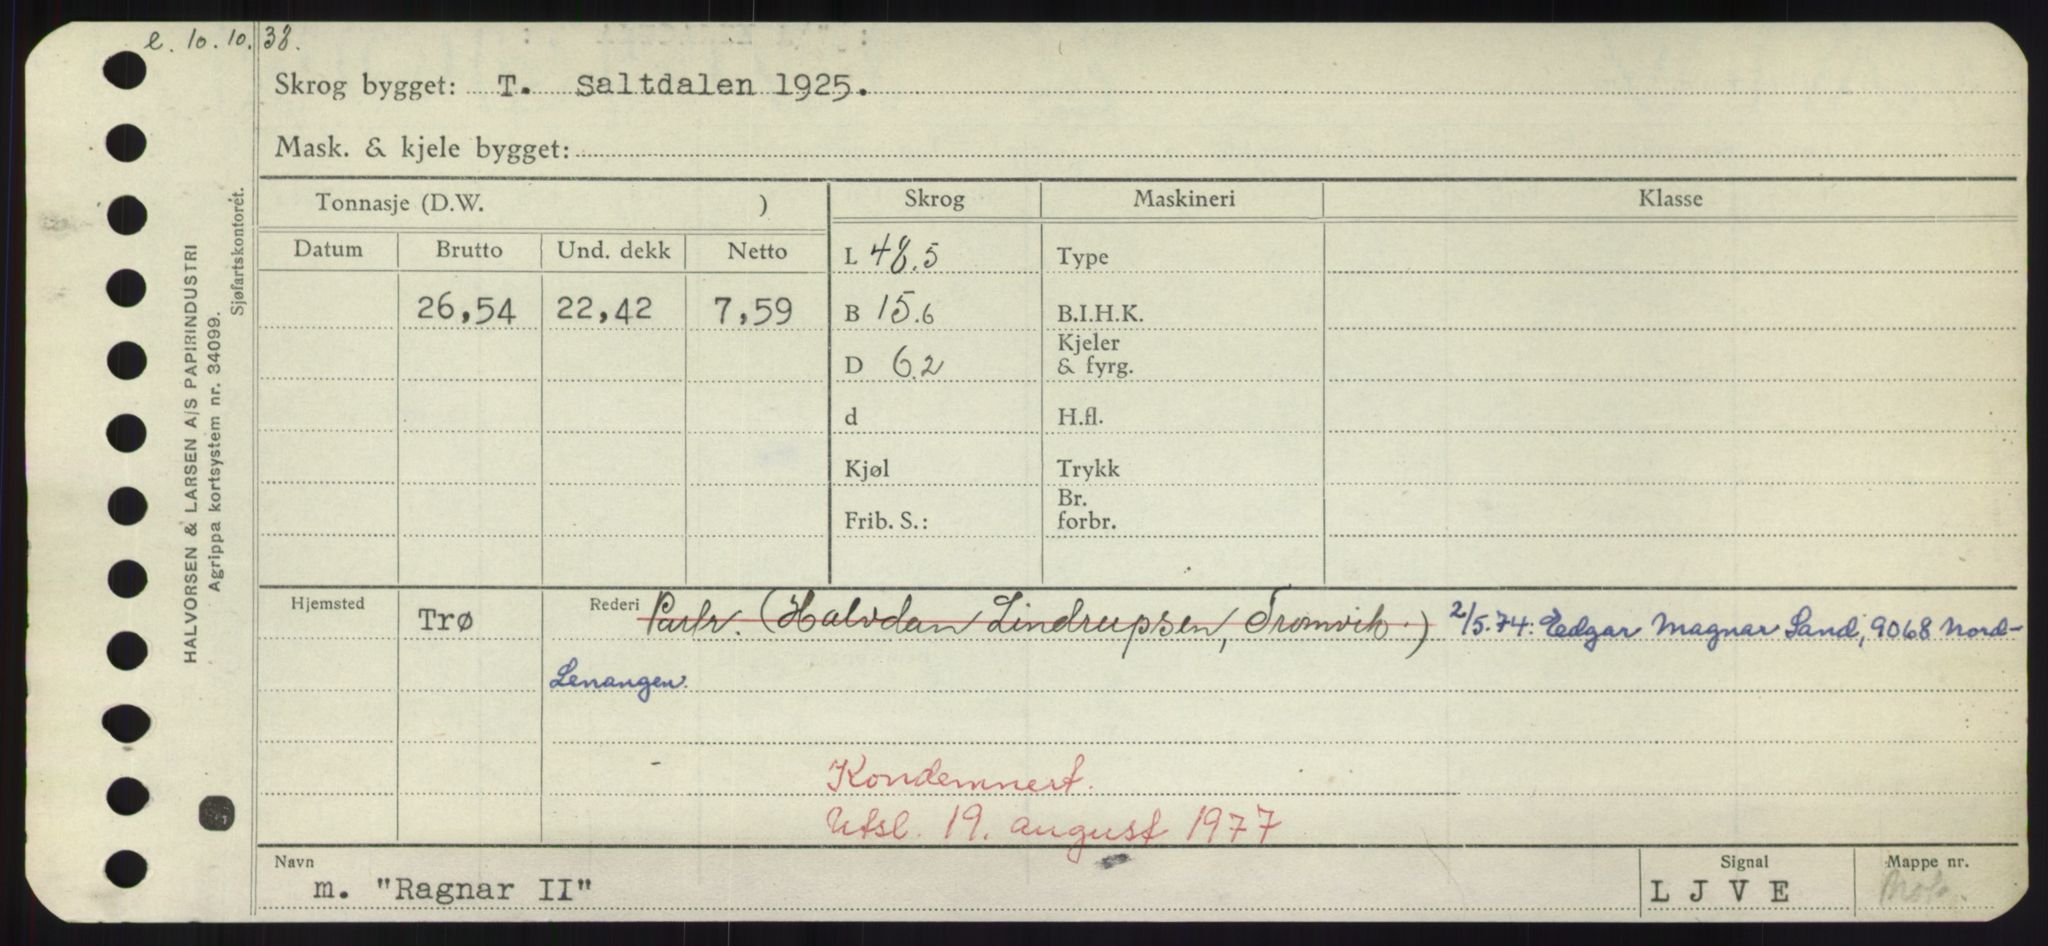 e. 10.10.38.
Skrog bygget: T. Saltdalen 1925.
Mask. & kjele bygget:
HALVORSEN & LARSEN A/S PAPIRINDUSTRI
Agrippa kortsystem nr. 34099.
Sjøfartskontoret.
Tonnasje (D.W. ) Skrog Maskineri Klasse
Datum Brutto Und. dekk Netto L 48.5 Type
26,54 22,42 7,59 B 15.6 B.I.H.K.
D 6.2 Kjeler & fyrg.
d H.fl.
Kjøl Trykk
Frib. S.: Br. forbr.
Hjemsted Trø Rederi Partr. (Halvdan Lindrupsen, Tromvik.) 2/5.74. Edgar Magnar Sand, 9068 Nord-
Lenangen.
Kondemnert.
Utsl. 19. august 1977
Navn Signal Mappe nr.
m. "Ragnar II" L J V E